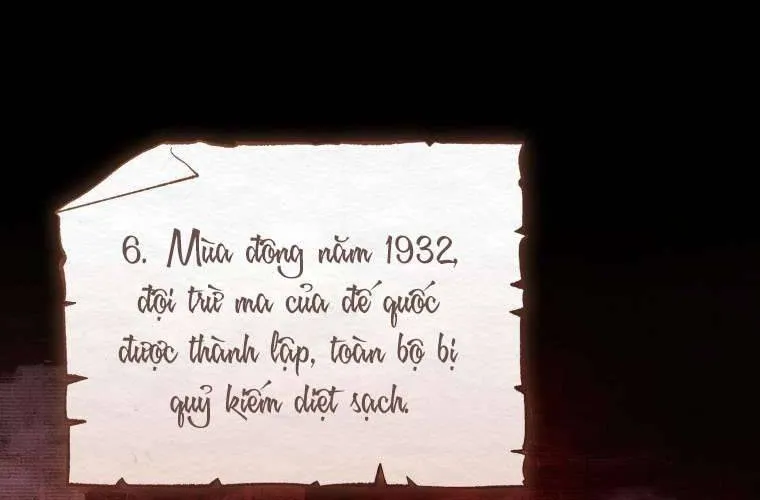 6. Mùa đông năm 1932,
đội trừ ma của đế quốc
được thành lập, toàn bộ bị
quỷ kiếm diệt sạch.